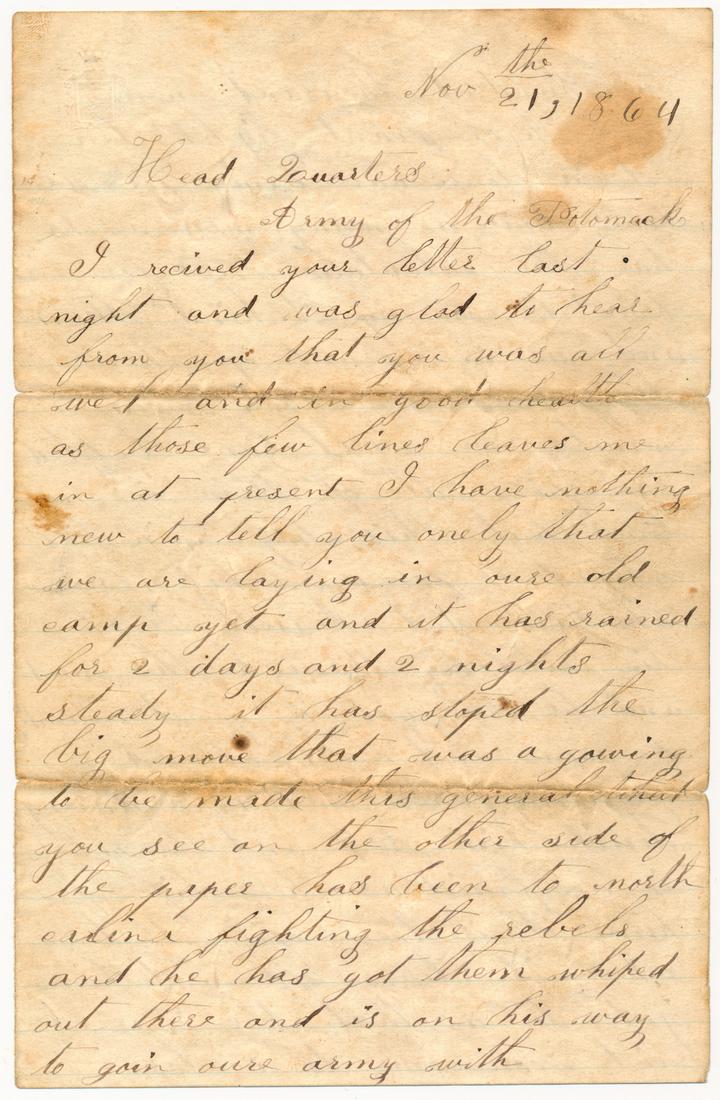 Nov the 21, 1864
Head Quarters
Army of the Potomack
I recived your letter last
night and was glad to hear
from you that you was all
well and in good health
as those few lines leaves me
in at present I have nothing
new to tell you onely that
we are laying in oure old
camp yet and it has rained
for 2 days and 2 nights
steady it has stoped the
big move that was a gowing
to be made this general that
you see on the other side of
the paper has been to north
calina fighting the rebels
and he has got them whiped
out there and is on his way
to goin oure army with